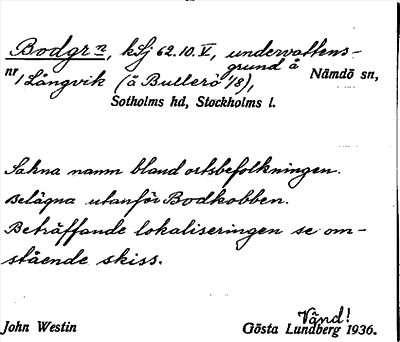 Bodgr n, ksj 62.10.V, undervattens-
grund å Nämdö sn,
nr/Långvik (å Bullerö 1/8),
Sotholms hd, Stockholms l.
Sakna namn bland ortsbefolkningen.
Belägna utanför Bodkobben.
Beträffande lokaliseringen se om-
stående skiss.
Vänd!
John Westin Gösta Lundberg 1936.